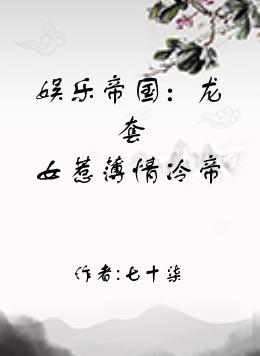 娱乐帝国：龙
套
女惹薄情冷帝
作者:七十柒